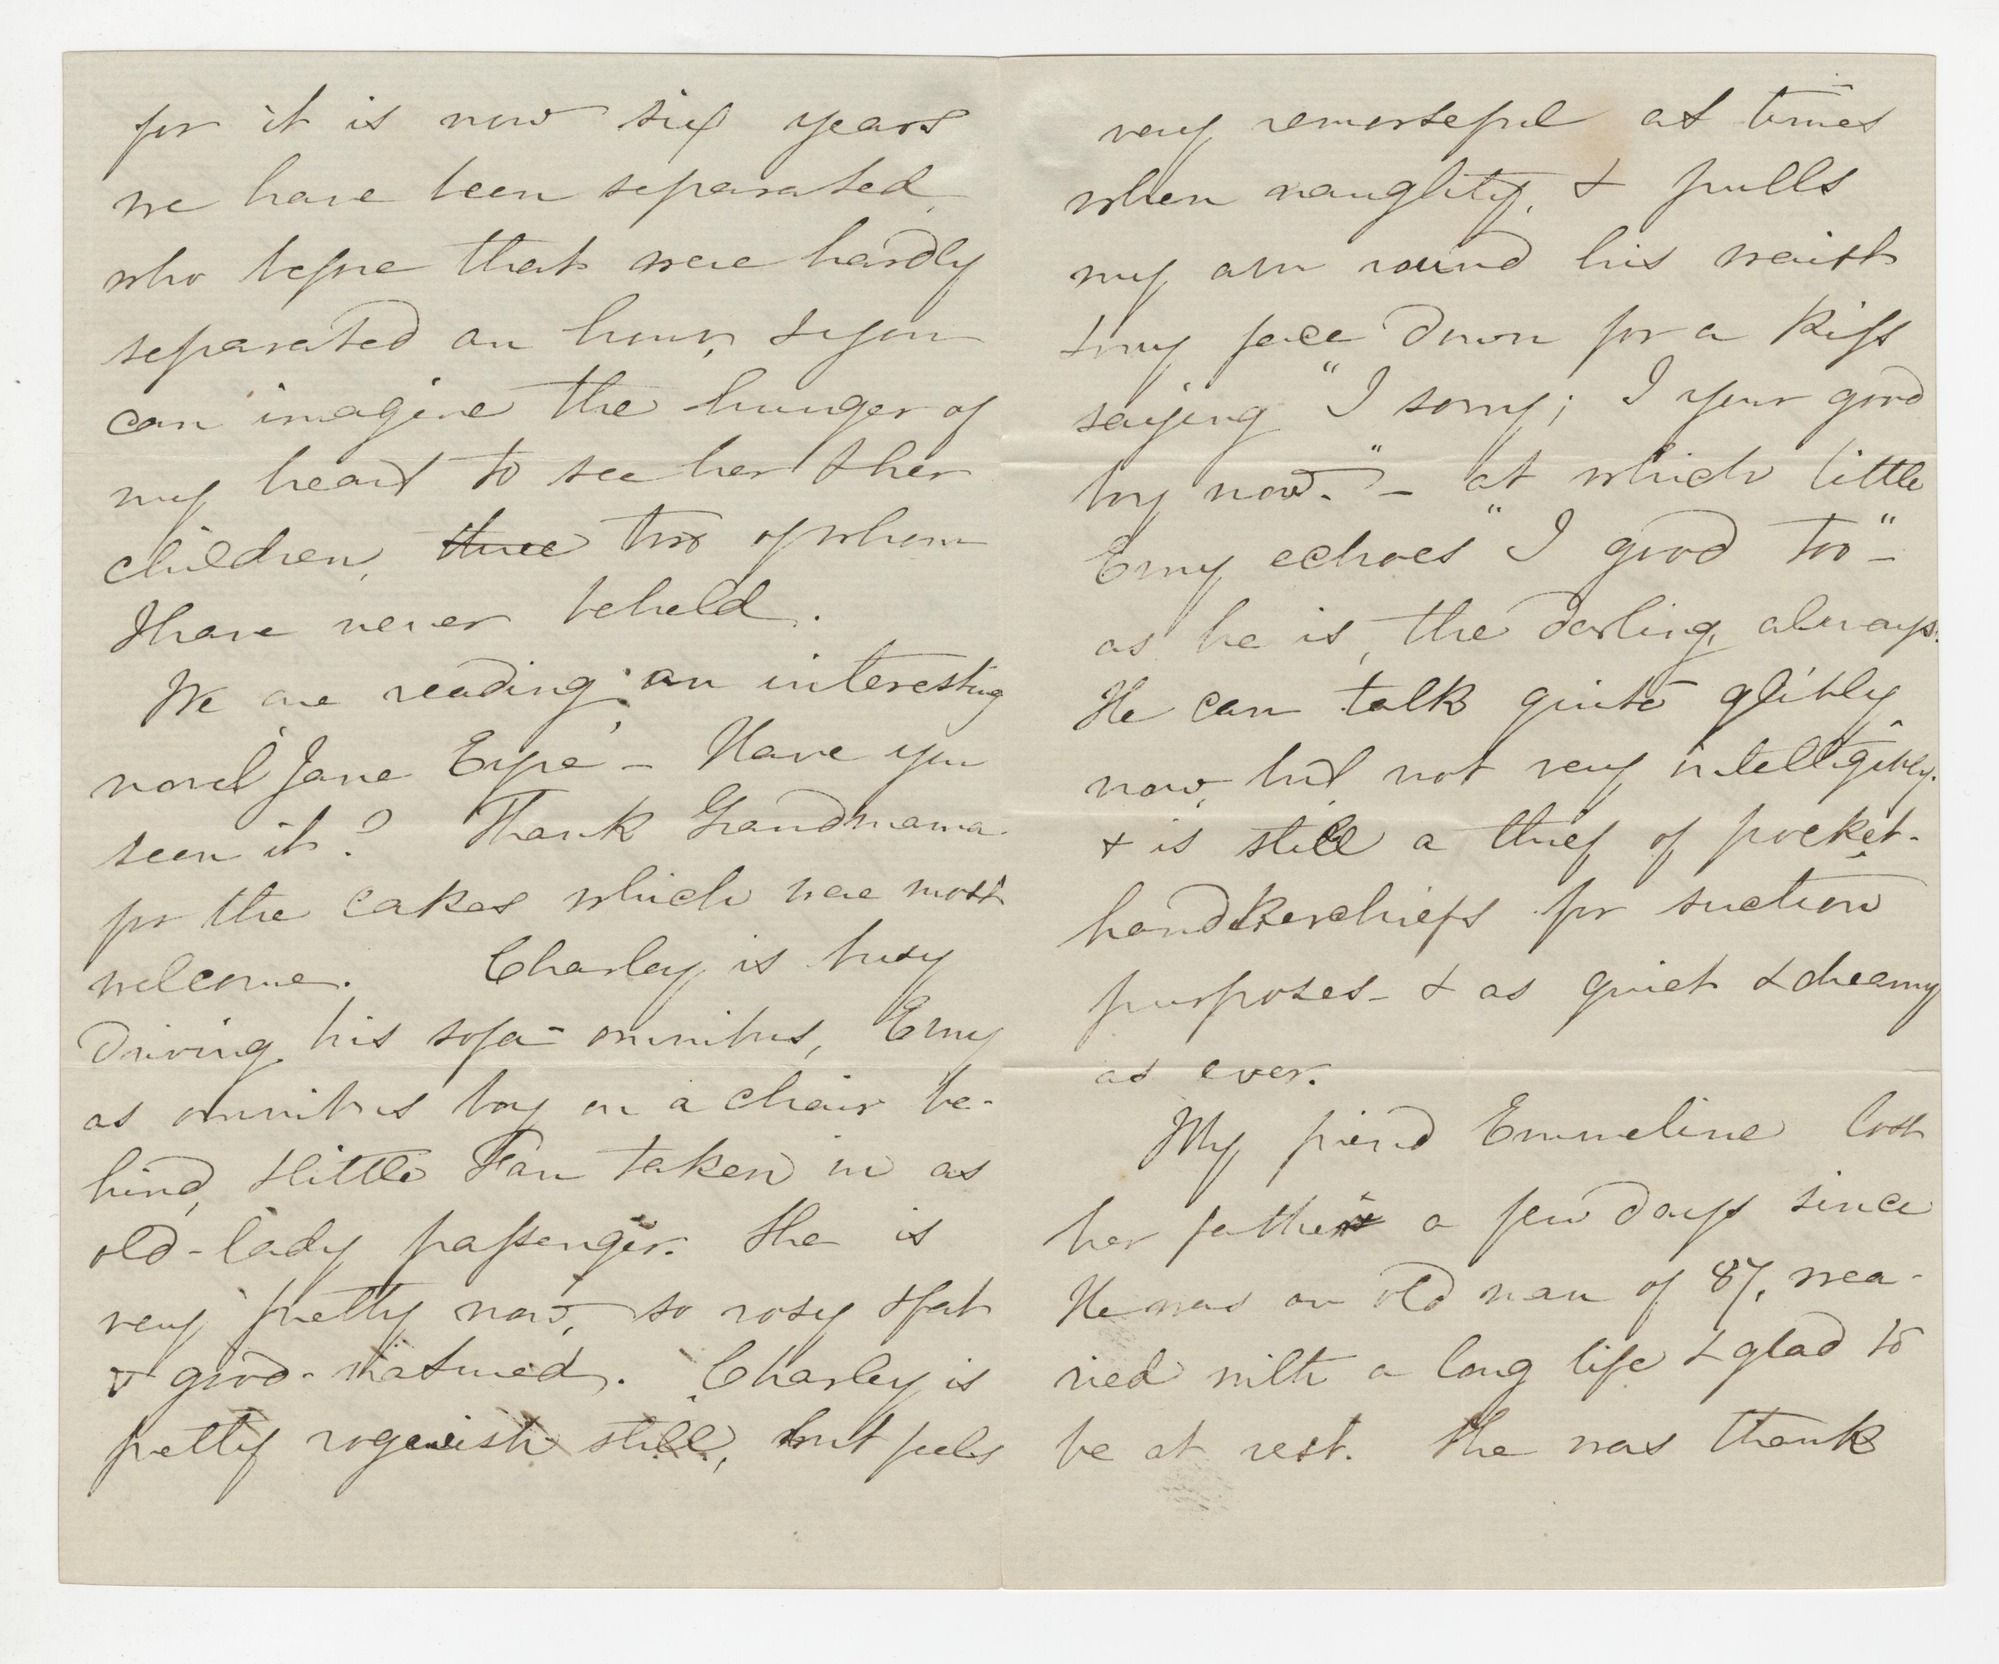 for it is now six years
we have been separated,
who before that were hardly
separated an hour, & you
can imagine the hunger of
my heart to see her & her
children, three two of whom
I have never beheld.
We are reading an interesting
novel 'Jane Eyre' - Have you
seen it? Thank Grandmama
for the cakes which were most
welcome. Charley is busy
driving his sofa-omnibus, Erny
as omnibus boy on a chair be-
hind, & little Fan taken in as
old-lady passenger. She is
very pretty now, so rosy & fat
& good-natured. Charley is
pretty rogueish still, but feels
very remorseful at times
when naughty, & pulls
my arm round his waist
& my face down for a kiss
saying "I sorry; I your good
boy now." - at which little
Erny echoes "I good too" -
as he is, the darling, always.
He can talk quite glibly
now, but not very intelligibly.
& is still a thief of pocket-
handkerchiefs for suction
purposes - & as quiet & dreamy
as ever.
My friend Emmeline lost
her father a few days since
He was an old man of 87, wea-
ried with a long life & glad to
be at rest. She was thank